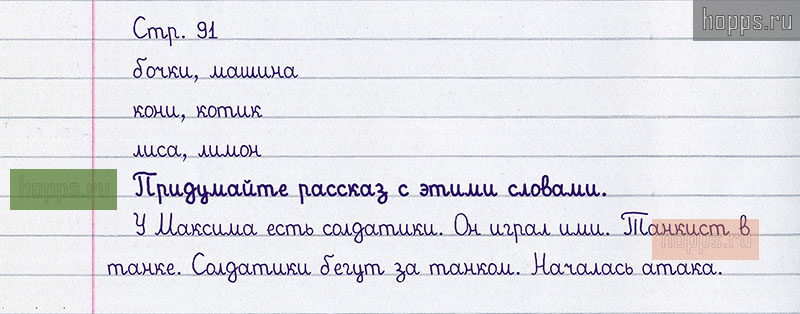 Стр. 91
hopps.ru
бочки, машина
кони, котик
лиса, лимон
hopps.ru
Придумайте рассказ с этими словами.
У Максима есть солдатики. Он играл ими. Танкист в
hopps.ru
танке. Солдатики бегут за танком. Началась атака.